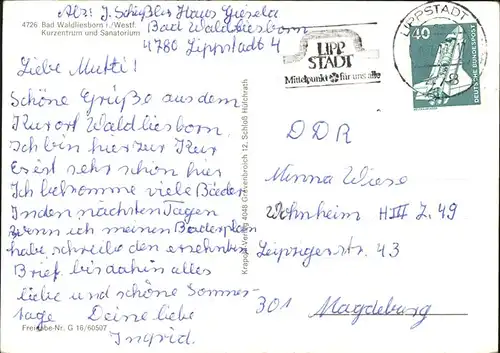 4726. Bad Waldliesborn i./Westf.
Kurzentrum und Sanatorium
Abs: J. Schießler Haus Gisela
Bad Waldliesborn
4780 Lippstadt 4
Liebe Mutti!
Schöne Grüße aus dem
Kurort Waldliesborn,
Ich bin hier zur Kur
Es ist sehr schön hier
Ich bekomme viele Bäder
In den nächsten Tagen
wenn ich meinen Bäderplan
habe, schreibe den ersehnten
Brief, bis dahin alles
liebe und schöne Sommer-
tage Deine liebe
Ingrid.
Freigabe-Nr. G 16/60507
Krapohl-Verlag 4048 Grevenbroich 12, Schloß Hülchrath
LIPP
STADT
Mittelpunkt für uns alle
LIPPSTADT
40
DEUTSCHE BUNDESPOST
DDR
Minna Wiese
Wohnheim H III Z. 49
Leipzigerstr. 43
301 Magdeburg